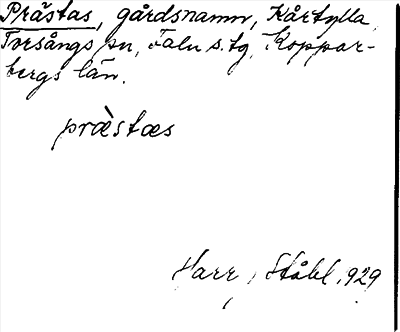 Prästas, gårdsnamn, Kårtylla,
Torsångs sn, Falu s.tg, Koppar-
bergs län.
præ̀stæs
Harr. Ståhl, 1929